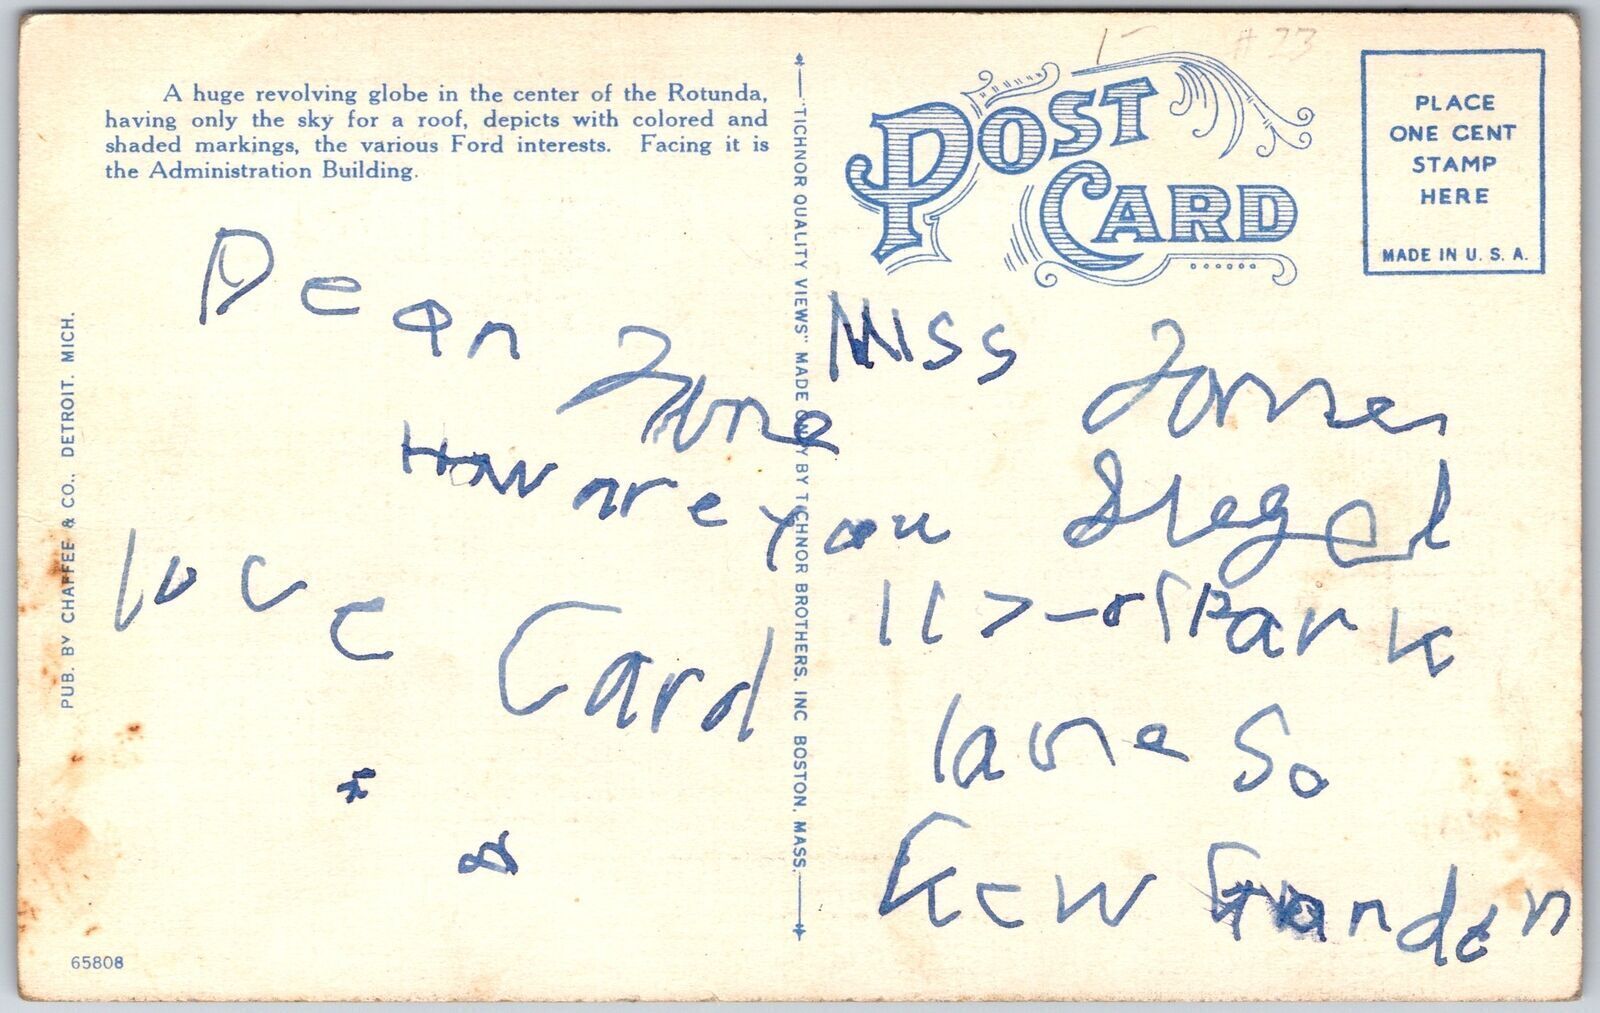 A huge revolving globe in the center of the Rotunda,
having only the sky for a roof, depicts with colored and
shaded markings, the various Ford interests. Facing it is
the Administration Building.
Dear
How are you
love
Card
PUB. BY CHAFFEE & CO., DETROIT, MICH.
65808
"TICHNOR QUALITY VIEWS" MADE ONLY BY TICHNOR BROTHERS, INC BOSTON, MASS.
# 23
POST
CARD
PLACE
ONE CENT
STAMP
HERE
MADE IN U. S. A.
Miss
Siegel
Park
lane So
Kew Garden